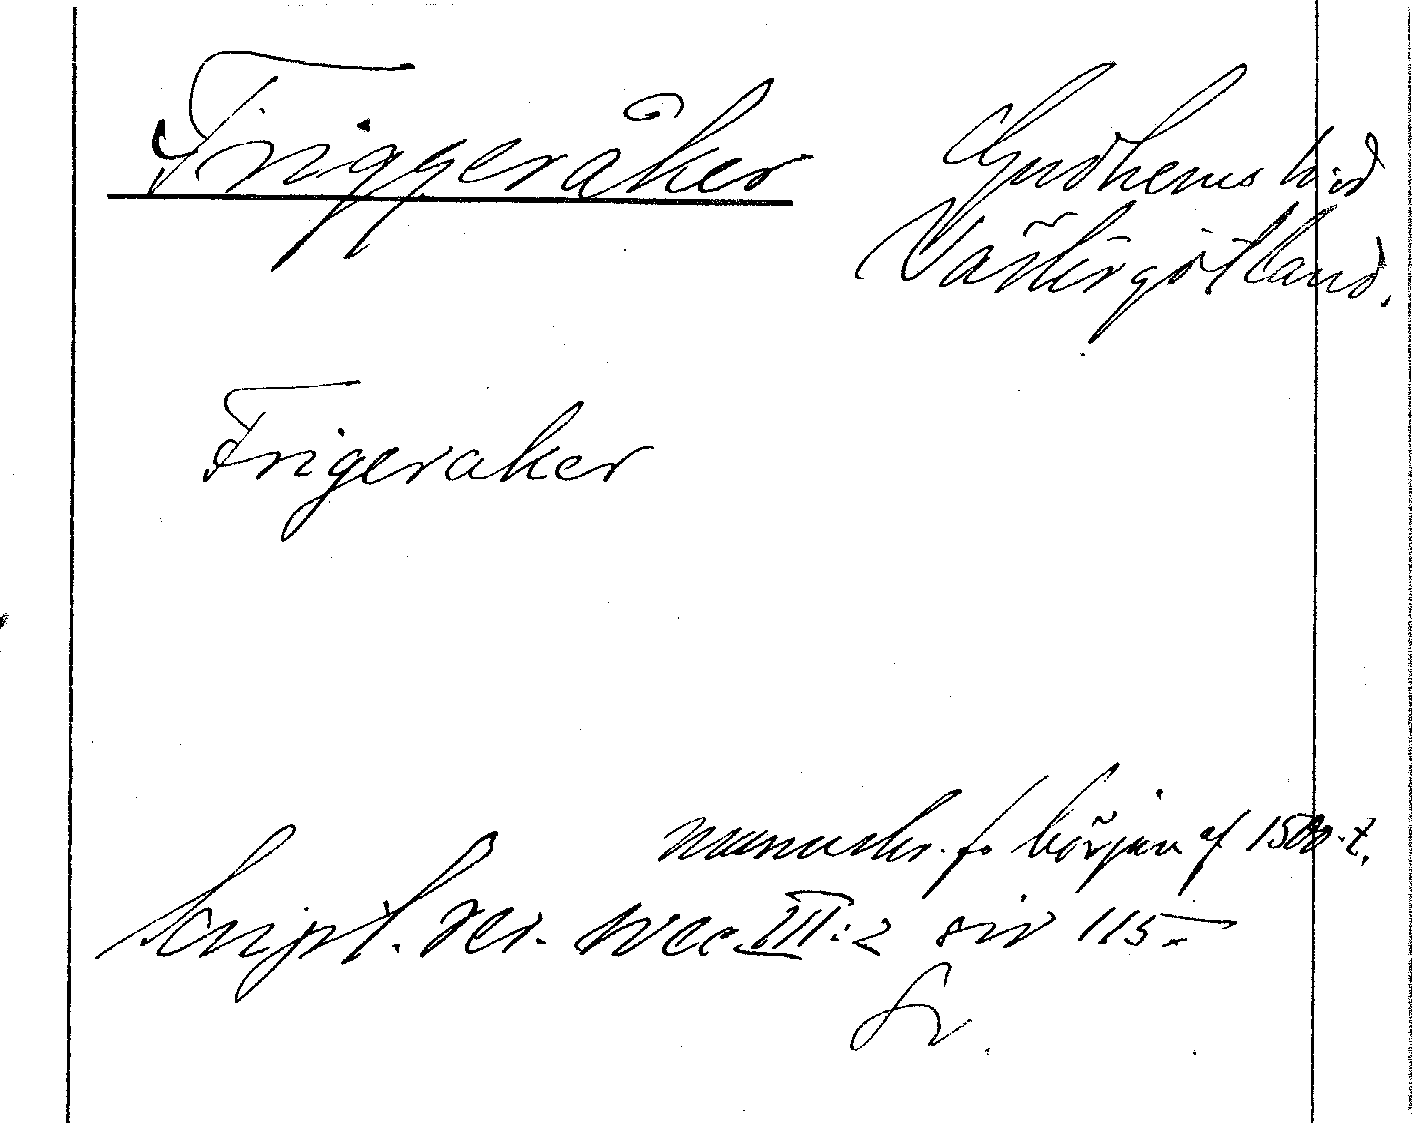 Friggeråker Gudhems h:d
Västergötland.
Frigeraker
manuskr. fr. början af 1500-t.
Script. rer. svec. III:2 sid 115.